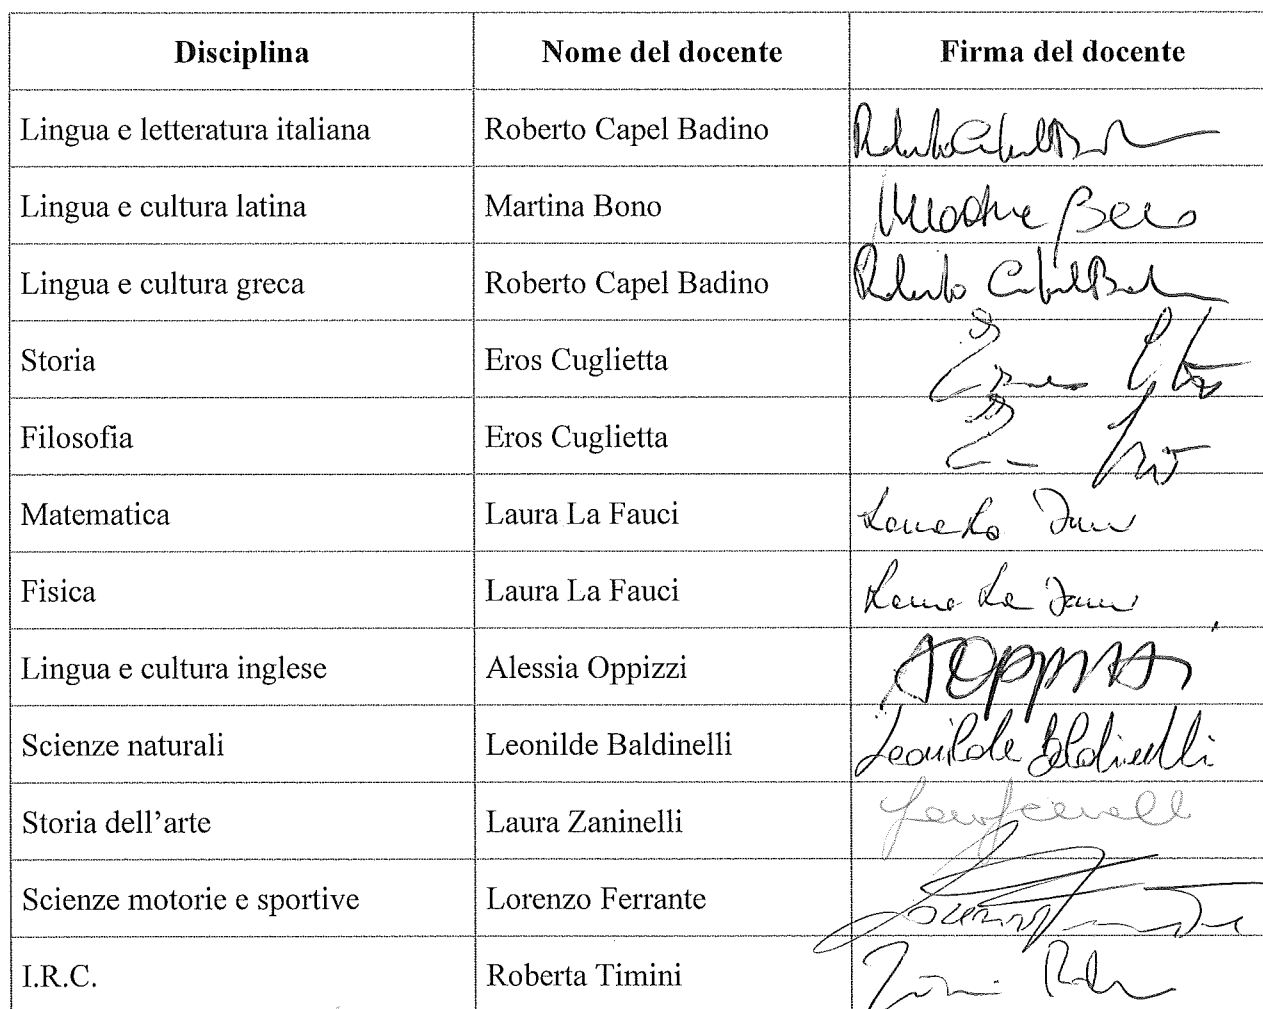 Disciplina Nome del docente Firma del docente
Lingua e letteratura italiana Roberto Capel Badino Roberto Capel Bad
Lingua e cultura latina Martina Bono
Lingua e cultura greca Roberto Capel Badino Roberto Capel Bad
Storia Eros Cuglietta
Filosofia Eros Cuglietta
Matematica Laura La Fauci
Fisica Laura La Fauci
Lingua e cultura inglese Alessia Oppizzi AOppizzi
Scienze naturali Leonilde Baldinelli Leonilde Baldinelli
Storia dell’arte Laura Zaninelli
Scienze motorie e sportive Lorenzo Ferrante
I.R.C. Roberta Timini